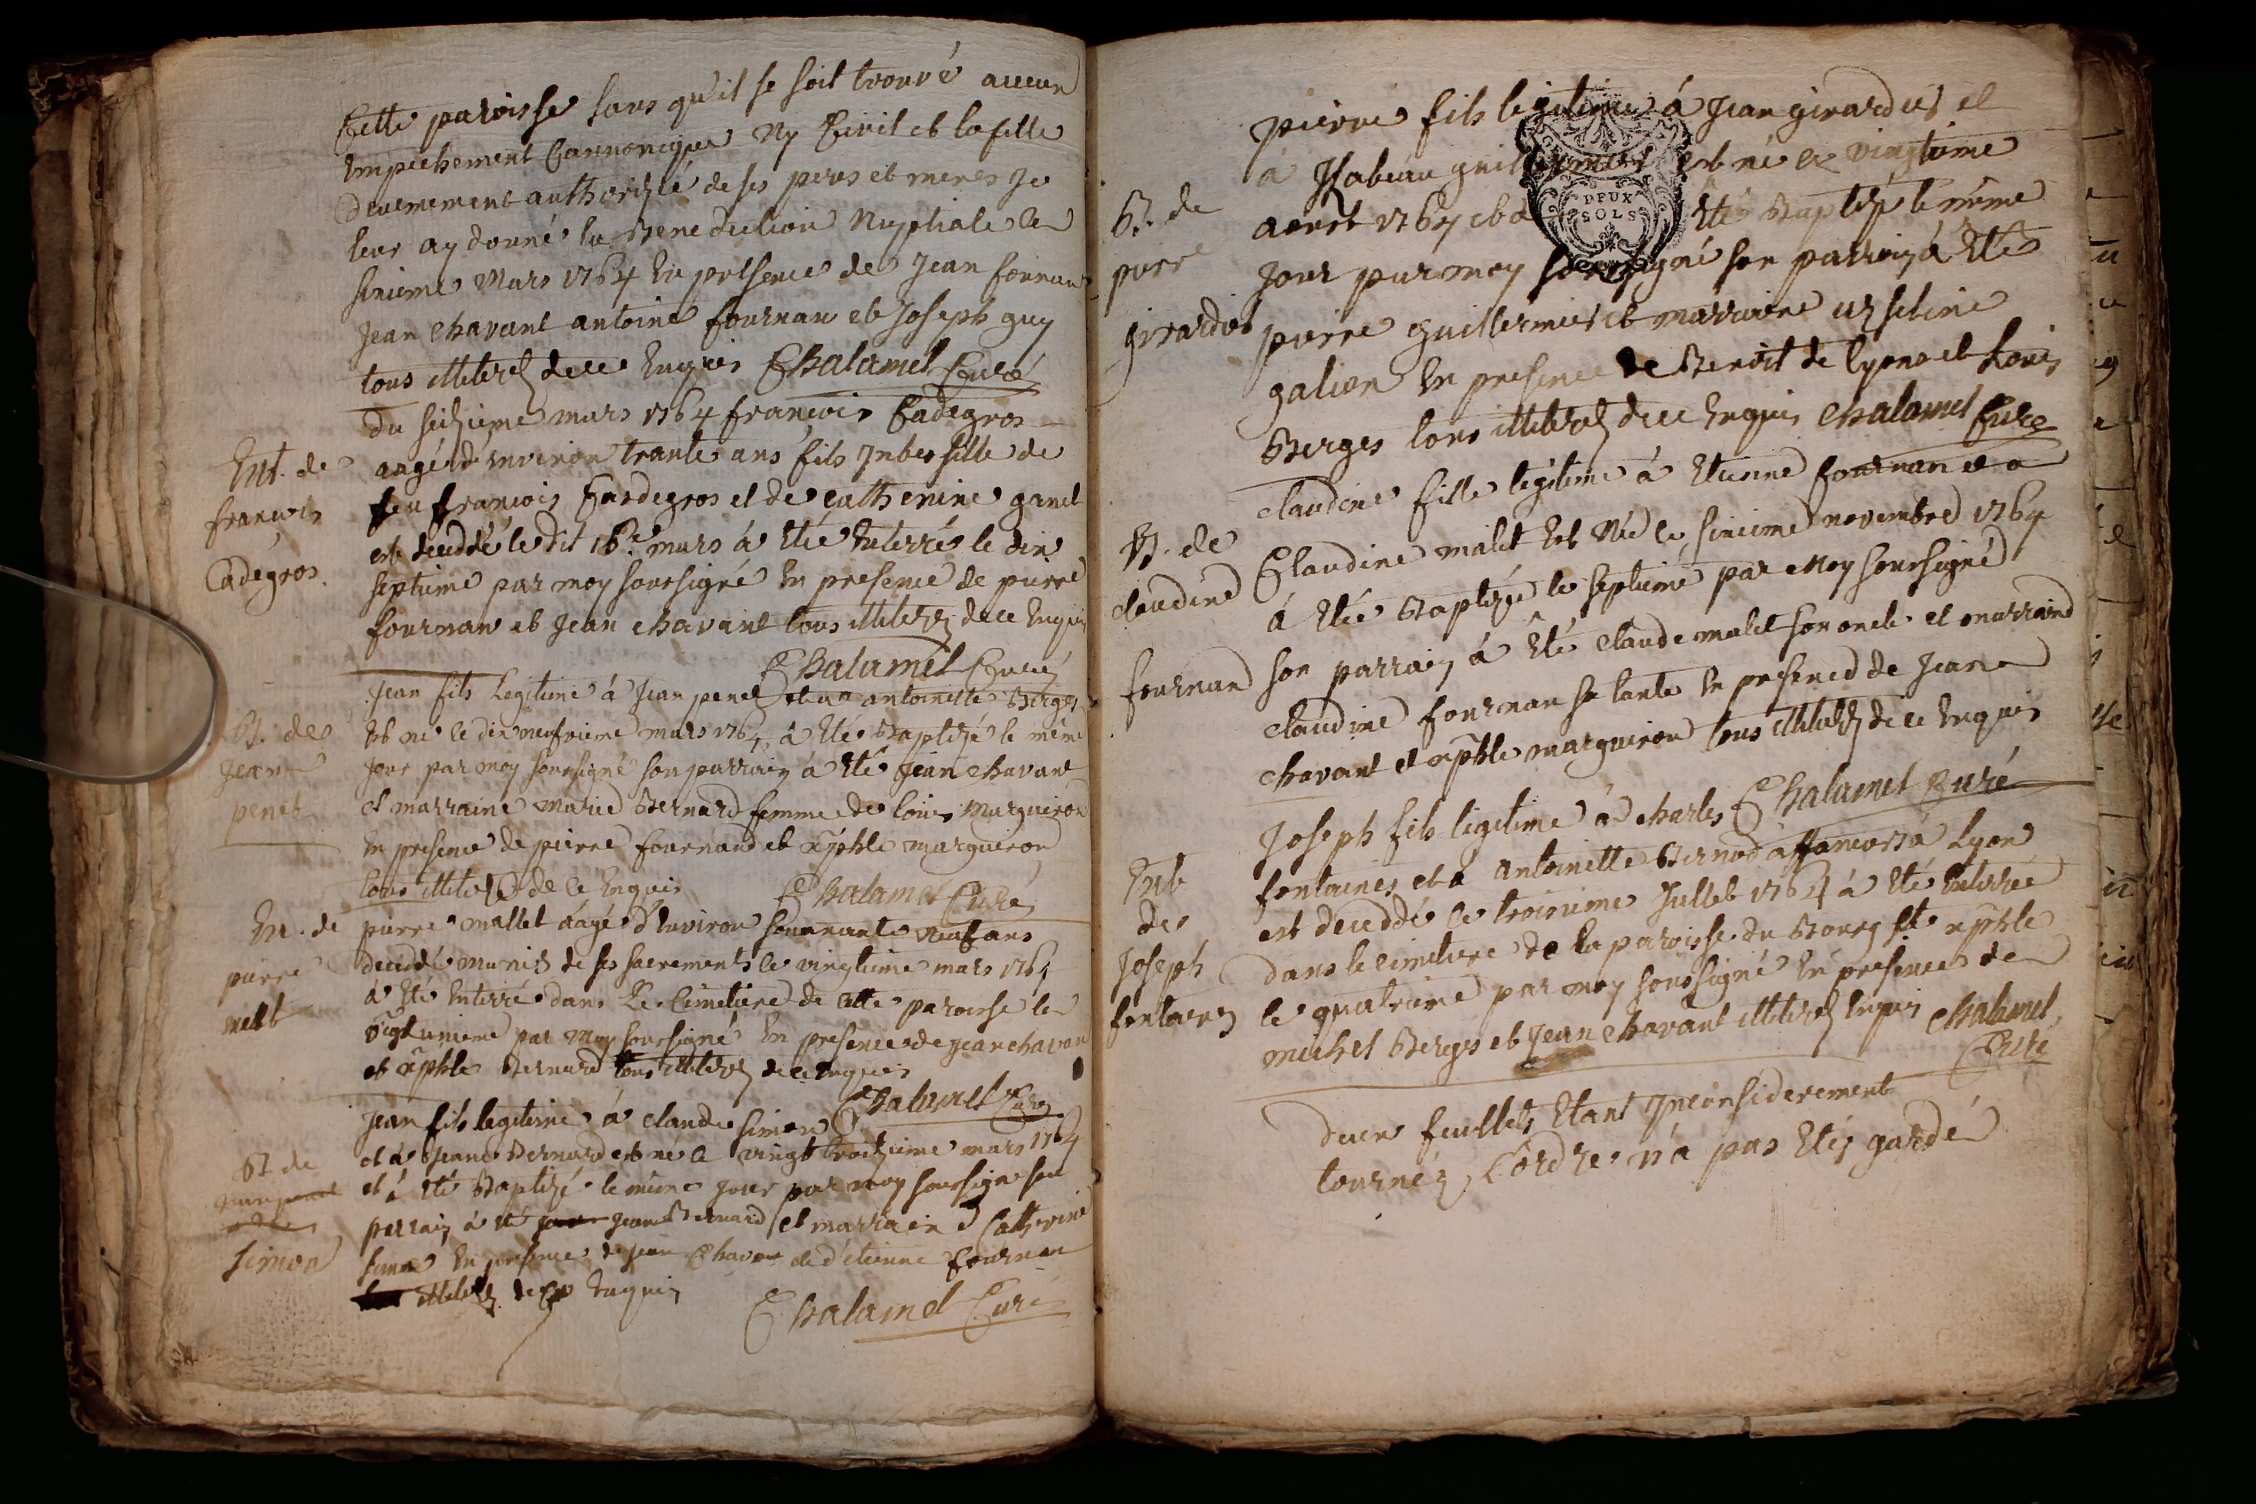 Cette paroisse sans qu'il se soit trouvé aucun
Empechement Cannonique Ny Civil et la fille
Deuement authorizée de ses peres et meres Je
leur ay donné la Benediction Nuptiale le
sixieme Mars 1764 En presence de Jean fournan
Jean chavant antoine fournan et Joseph guy
tous illiterez de ce Enquis Chalamel Curé
Ent. de
françois
Cadegros
du seizieme mars 1764 françois Cadegros
aagé d'environ trante ans fils Inbessille de
feu françois Cardegros et de catherine ganet
est deceddé le dit 16e mars à Eté Enterré le dix
septieme par moy soussigné En presence de pierre
fournan et Jean chavant tous illiterez de ce Enquis
Chalamel Curé
B. de
Jean
penet
Jean fils Legitime à Jean penet et a antoinette Berges
Est né le dix neufvieme mars 1764 à Eté Baptizé le même
Jour par moy soussigné son parrain a Eté Jean chavant
et marraine marie Bernard femme de louis Margueron
En presence de pierre fournand et xphle margueron
tous illiterez de ce Enquis Chalamel Curé
En. de
pierre
melt
pierre mallet aagé d'Environ soixante neuf ans
deceddé munis de ses sacrements le vingtieme mars 1764
à Eté Enterré dans Le Cimetiere de cette paroisse le
vigt unieme par Moy soussigné En presence de Jean chavan
et xphle Bernard tous illiterez de ce Enquis
Chalamel Curé
B. de
simon
Jean fils legitime à claude simon
et à Jeane Bernard est né le vingt troizieme mars 1764
et à Eté Baptizé le mème jour par moy soussigné son
parrain à Eté Jean Bernard et marraine Catherine
En presence de Jean Chavan et d'etienne fournan
illiterez de ce Enquis
Chalamel Curé
B. de
pierre
girardies
pierre fils legitime à Jean girardies et
à Isabeau est né le vingtieme
aoust 1764 et a Eté Baptizé le même
Jour par moy soussigné son parrain à Eté
pierre guillermiet et marraine
galien En presence de Benoit de lyons et Louis
Berges tous illiterez de ce Enquis Chalamel Curé
B. de
claudine
fournand
claudine fille legitime à Etienne fournan et a
Claudine malet Est Née le sixieme novembre 1764
à Etée Baptizée le septieme par Moy soussigné
son parrain à Eté claude malet son oncle et marraine
claudine fournan sa tante En presence de Jean
chavant et xphle margueron tous illiterez de ce Enquis
Chalamel Curé
Ent
de
Joseph
fontaines
Joseph fils legitime à charles
fontaines et a antoinette Bernod a Lyon
est deceddé le troisieme Jullet 1764 à Eté Enterrée
dans le cimetiere de la paroisse du Bourg St xphle
le quatrieme par moy soussigné En presence de
michel Berges et Jean chavant illiterez Enquis Chalamel
Curé
deux feuillets Etant Inconsiderement
tournéz, L'ordre n'a pas Etéz gardé
DEUX
SOLS